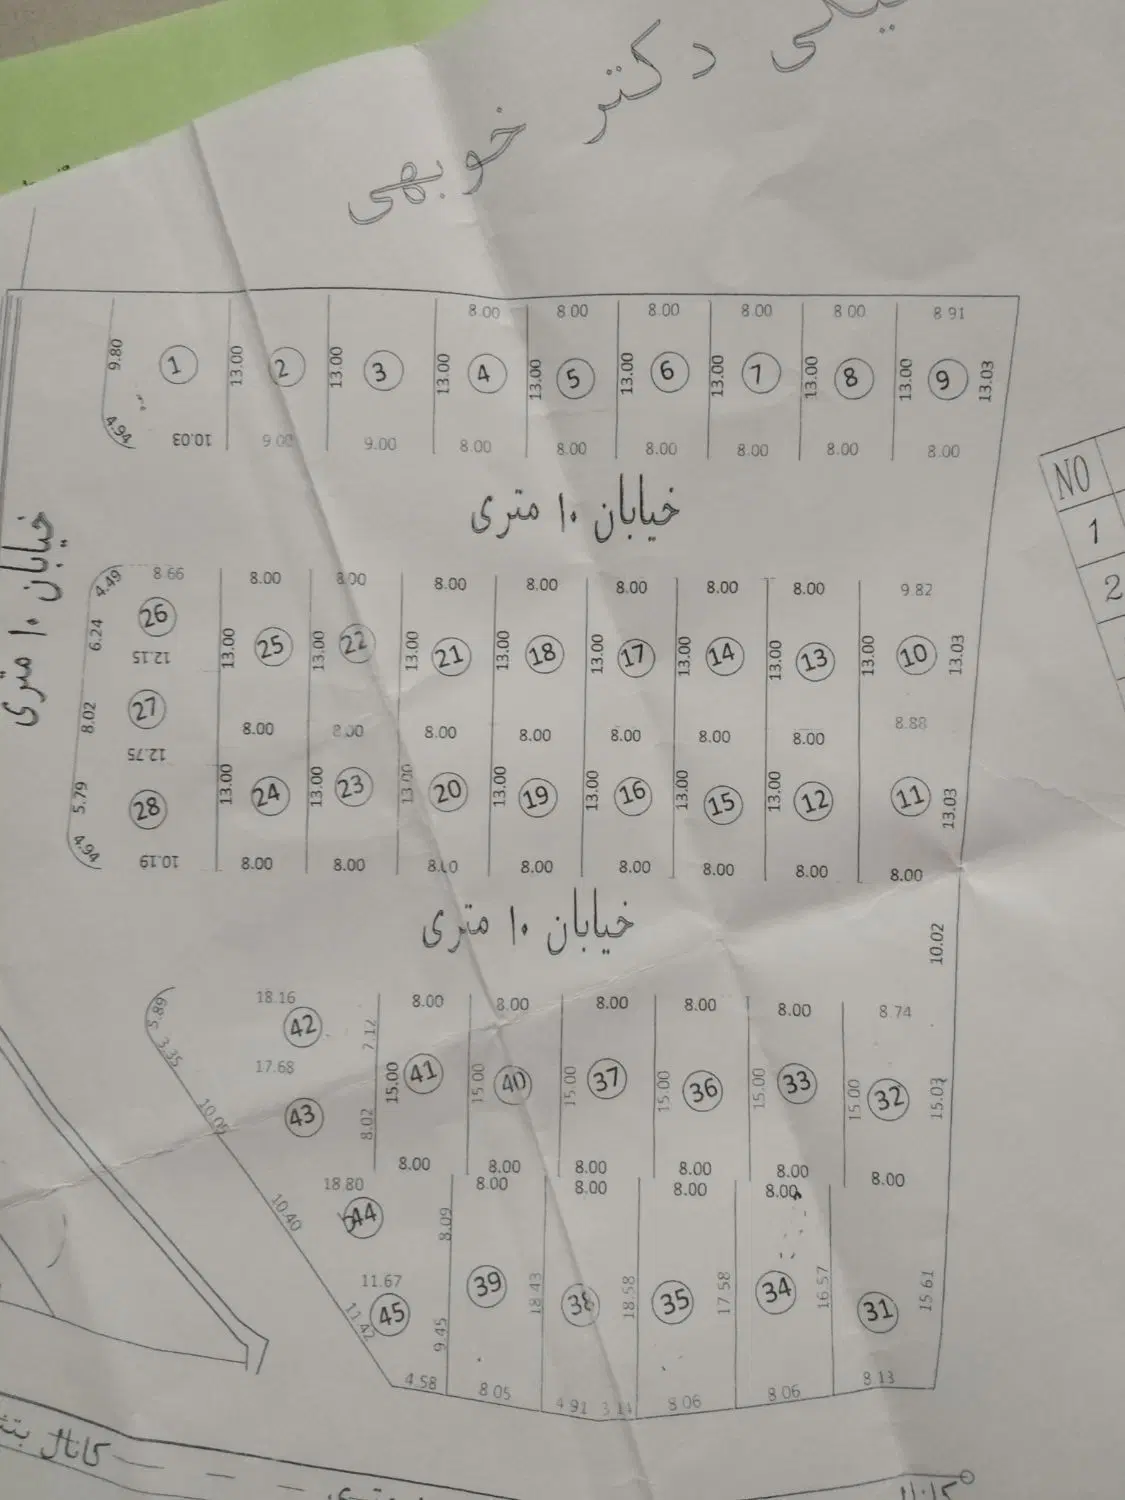 دکتر خوبهی
8.00 8.00 8.00 8.00 8.00 8.91
9.80 1 13.00 2 13.00 3 13.00 4 13.00 5 13.00 6 13.00 7 13.00 8 13.00 9 13.03
4.94 10.03 9.00 9.00 8.00 8.00 8.00 8.00 8.00 8.00
NO
1
2
خیابان ۱۰ متری
خیابان ۱۰ متری
4.49 8.66 8.00 8.00 8.00 8.00 8.00 8.00 8.00 9.82
26
6.24 13.00 25 13.00 22 13.00 21 13.00 18 13.00 17 13.00 14 13.00 13 13.00 10 13.03
12.15
8.02 27 8.00 8.00 8.00 8.00 8.00 8.00 8.00 8.88
12.75
5.79 28 13.00 24 13.00 23 13.00 20 13.00 19 13.00 16 13.00 15 13.00 12 11 13.03
4.94 10.19 8.00 8.00 8.00 8.00 8.00 8.00 8.00 8.00
خیابان ۱۰ متری
10.02
5.89 18.16 8.00 8.00 8.00 8.00 8.00 8.74
42 7.12
3.35 17.68
15.00 41 15.00 40 15.00 37 15.00 36 15.00 33 15.00 32 15.03
10.05 43 8.02
8.00 8.00 8.00 8.00 8.00 8.00
18.80 8.00 8.00 8.00 8.00
10.40 44 8.09
11.67 39 18.43 38 18.58 35 17.58 34 16.57 31 15.61
11.42 45 9.45
4.58 8.05 4.91 3.14 8.06 8.06 8.13
کانال